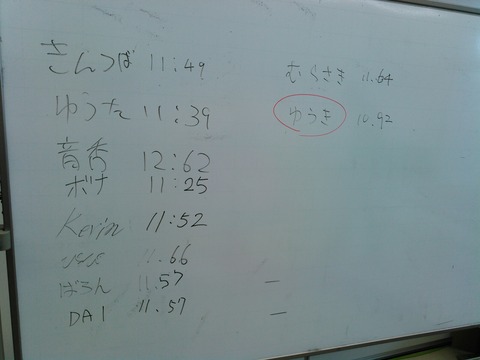 きんつば 11:49
ゆうた 11:39
音秀 12:62
ボナ 11:25
Kevin 11:52
11.66
ばろん 11.57
DAI 11.57
むらさき 11.64
ゆうき 10.92